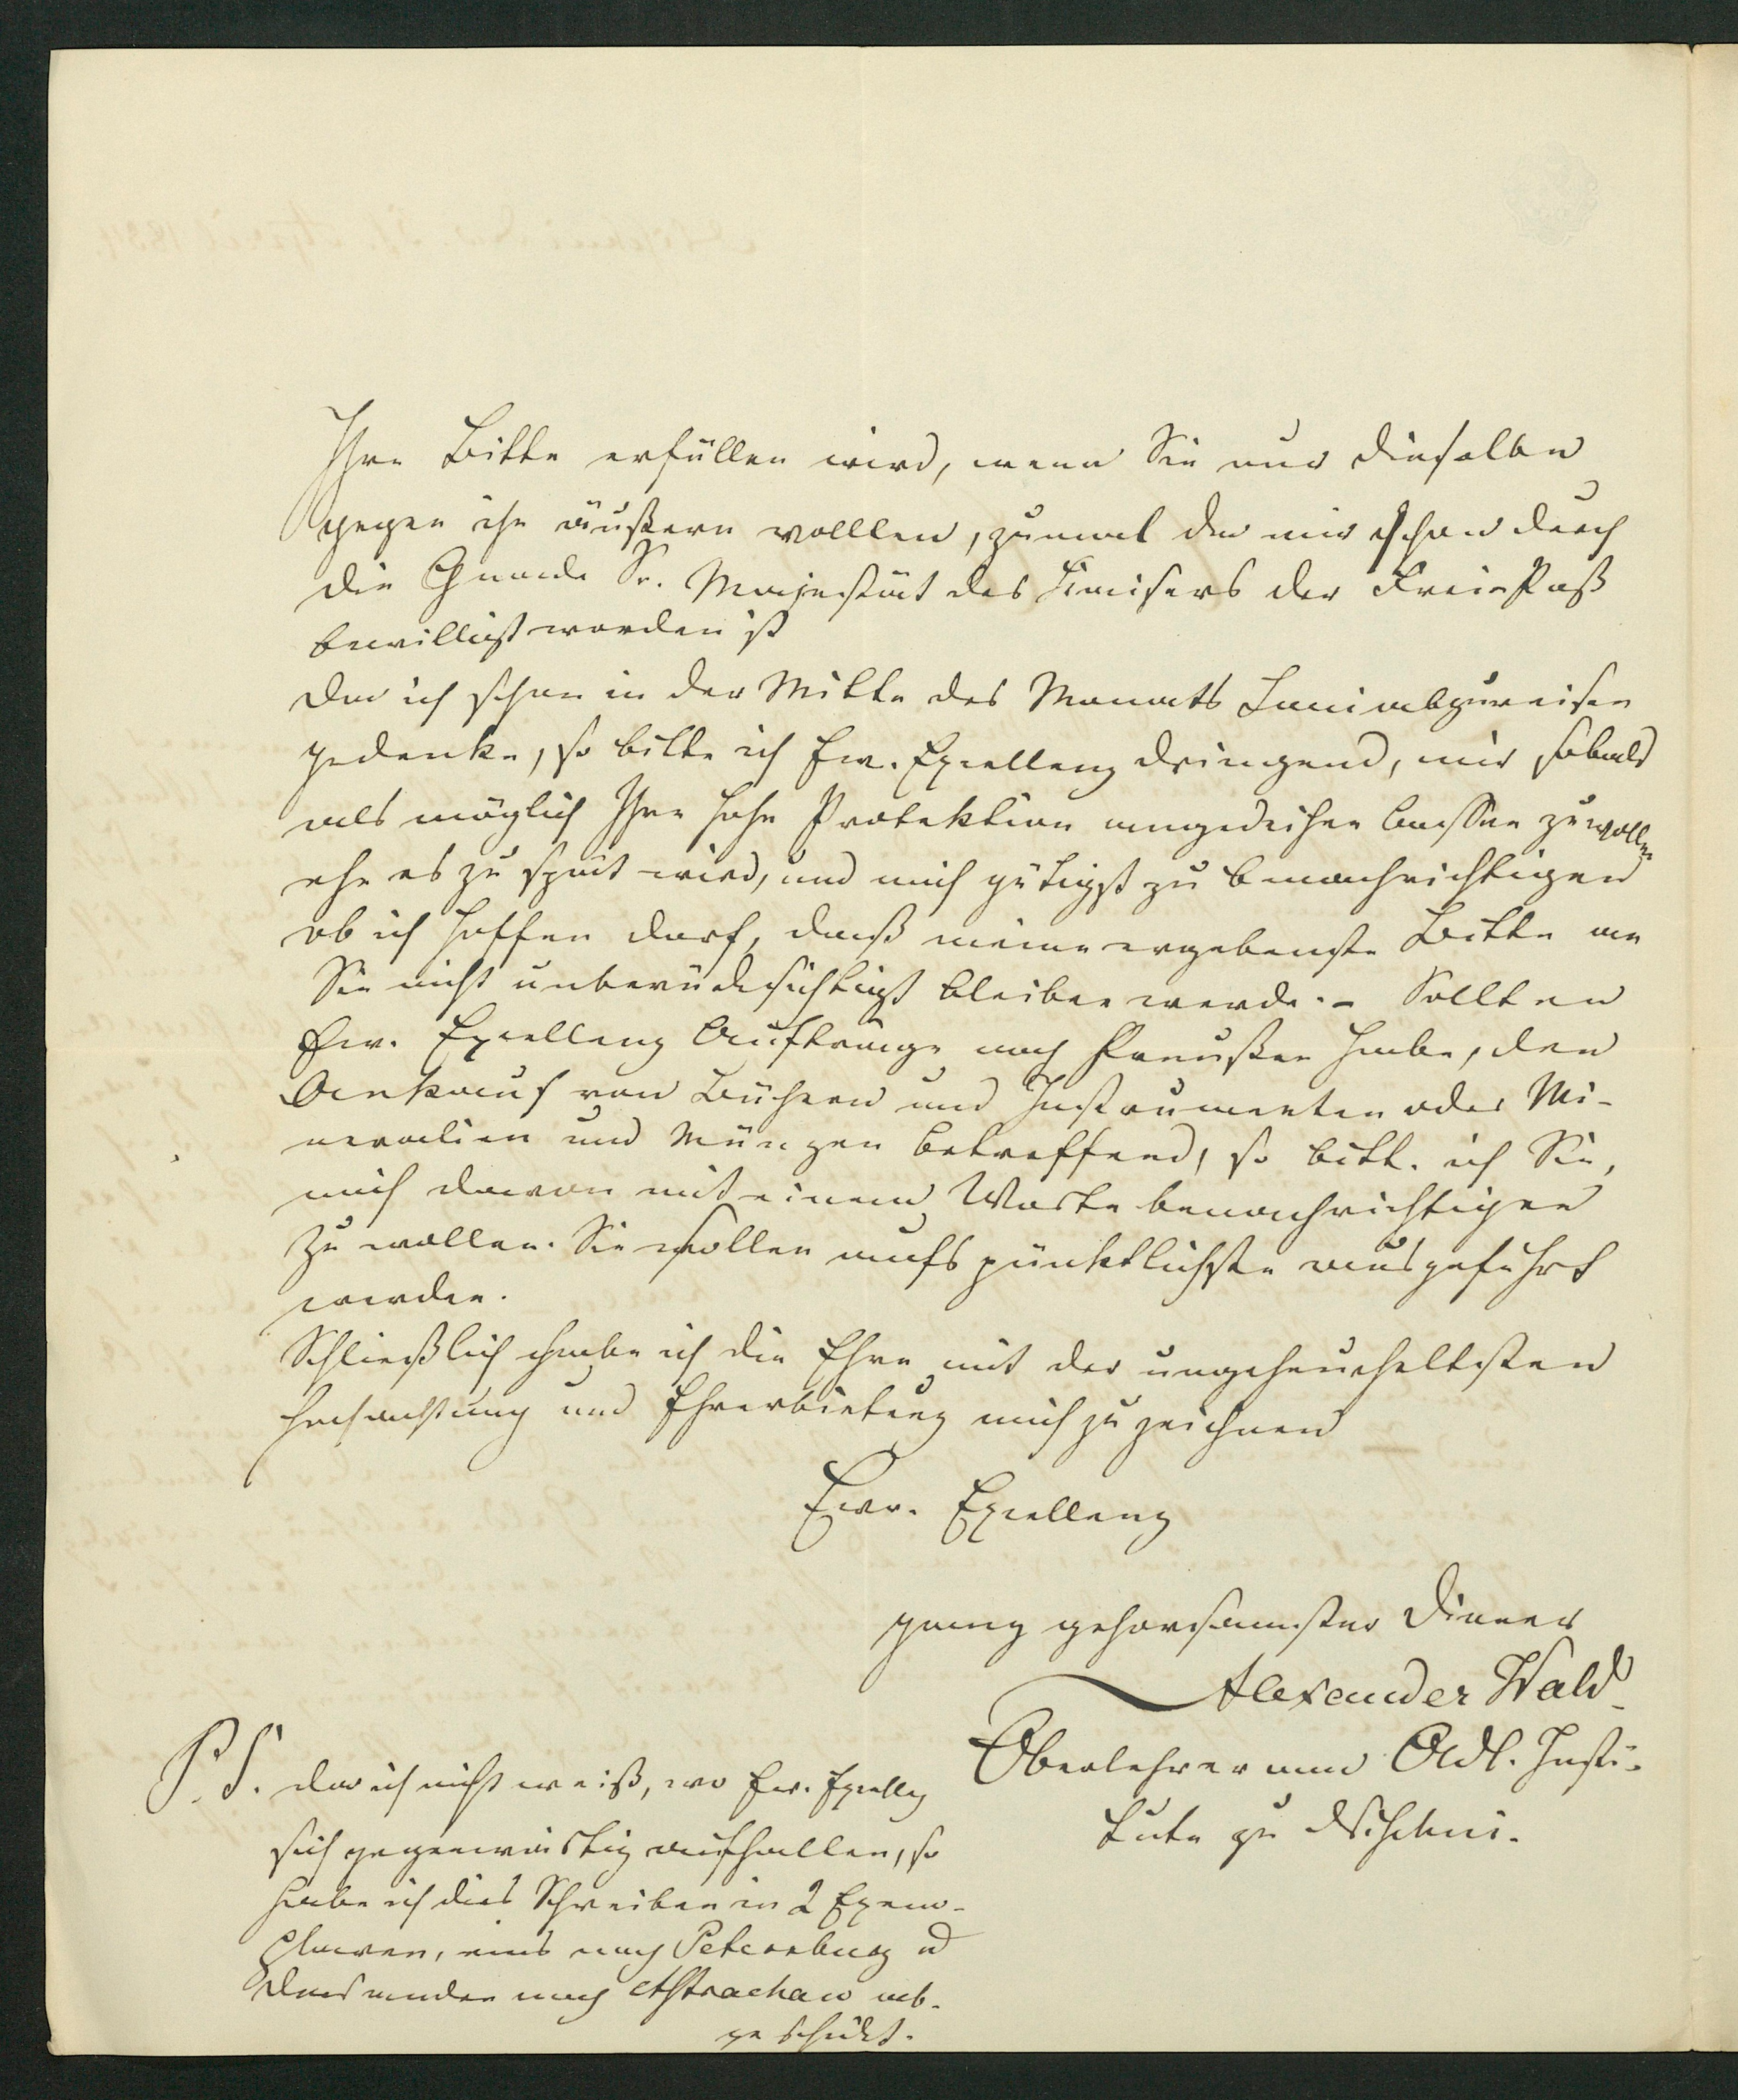 Ihre Bitte erfüllen wird, wenn Sie nur dieselbe
gegen ihn äußern wolllen, zumal da mir schon durch
die Gnade Sr. Majestät des Kaisers der Freie Paß
bewilligt worden ist
Da ich schon in der Mitte des Monats Juni abzureisen
gedenke, so bitte ich Ew. Excellenz dringend, mir sobald
als möglich Ihre hohe Protektion angedeihen lassen zu wollen
ehe es zu spät wird, und mich gütigst zu benachrichtigen
ob ich hoffen darf, daß meine ergebenste Bitte an
Sie nicht unberücksichtigt bleiben werde. – Sollten
Ew. Excellenz Aufträge nach Preußen habe, den
Ankauf von Büchern und Instrumenten oder Mi-
neralien und Münzen betreffend, so bitt. ich Sie,
mich davon mit einem Worte benachrichtigen
zu wollen. Sie sollen aufs pünktlichste ausgeführt
werden.
Schließlich habe ich die Ehre mit der ungeheucheltsten
Hochachtung und Ehrerbietung mich zu zeichnen
Ewr. Excellenz
ganz gehorsamster Diener
Alexander Wald
Oberlehrer am Adl. Insti-
tute zu
P. S. Da ich nicht weiß, wo Ew. Excellz
sich gegenwärtig aufhallten, so
habe ich dies Schreiben in 2 Exem-
plaren, eins nach Petersburg u
das andere nach Astrachan ab-
geschickt.